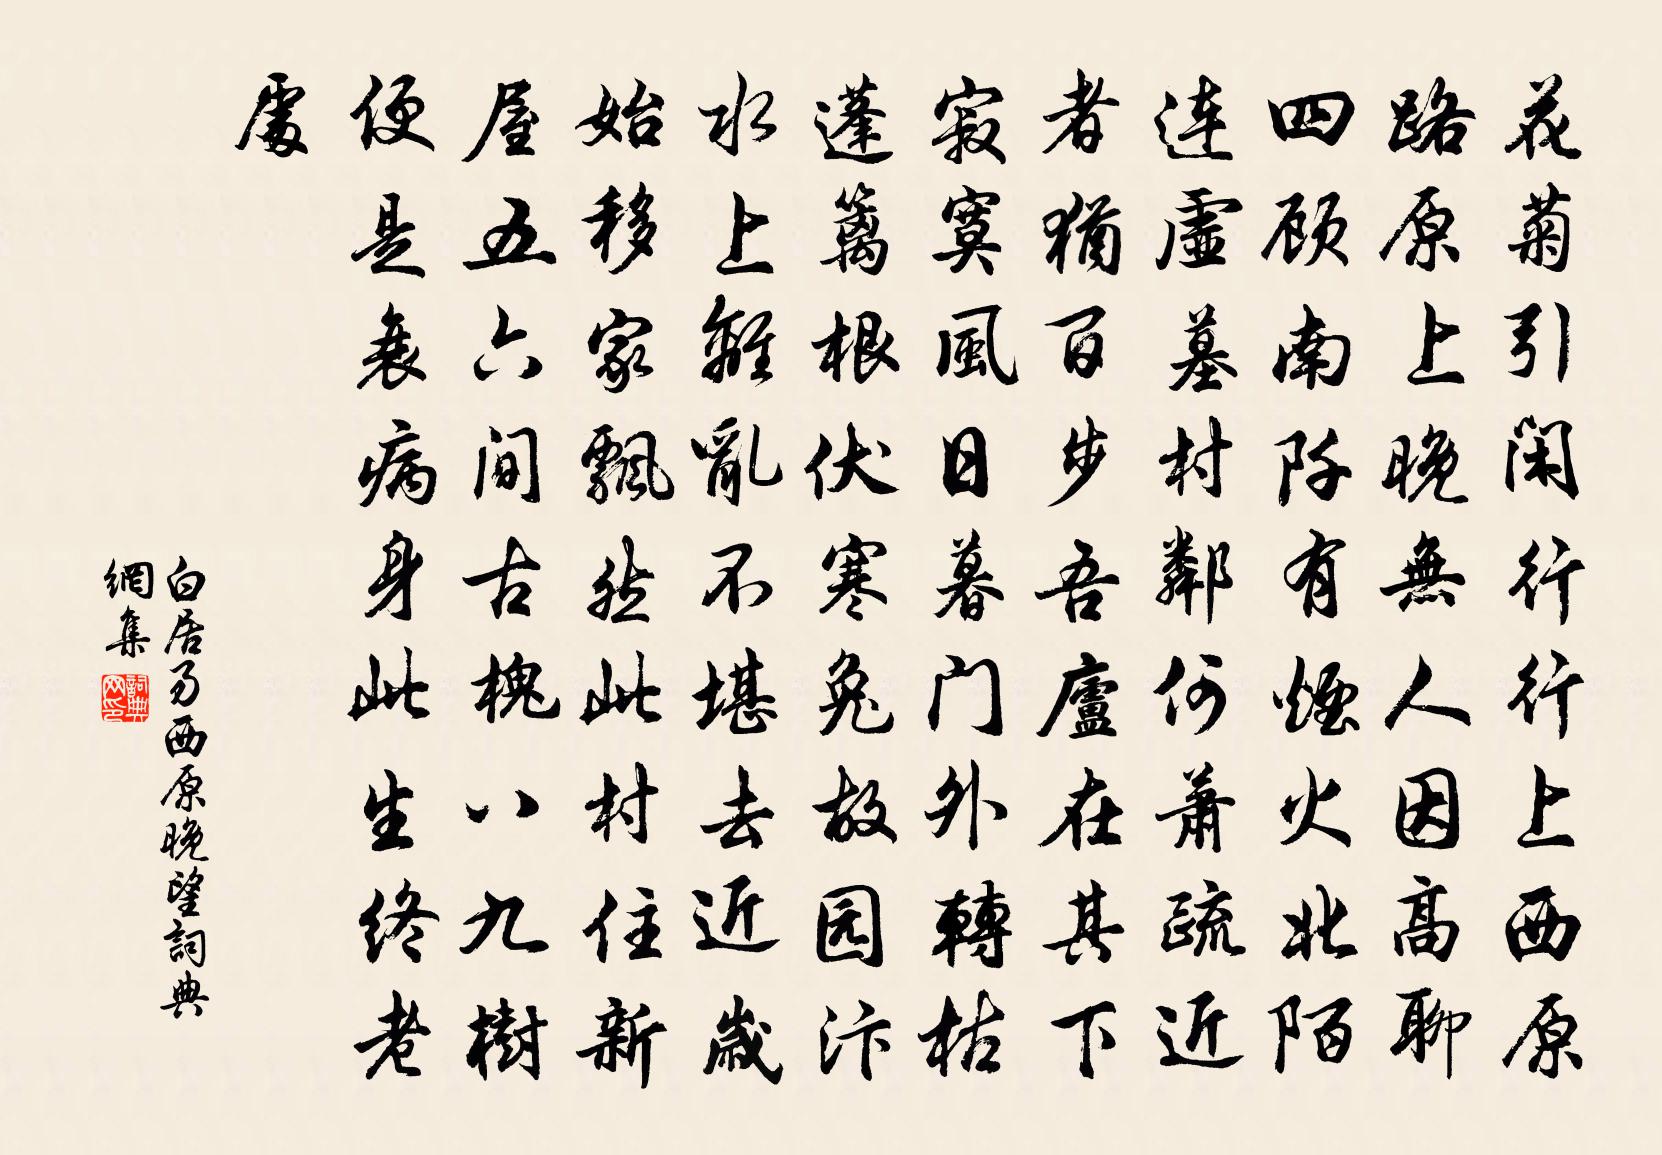 花菊引閑行行上西原
路原上晚無人因高聊
四顾南阡有煙火北陌
連虛墓村鄰何蕭疏近
者猶百步吾廬在其下
寂寞風日暮门外轉枯
蓬籬根伏寒兔故园汴
水上離亂不堪去近歲
始移家飄然此村住新
屋五六间古槐八九樹
便是衰病身此生终老
處
白居易西原晚望詞典
網集
詞典
网印